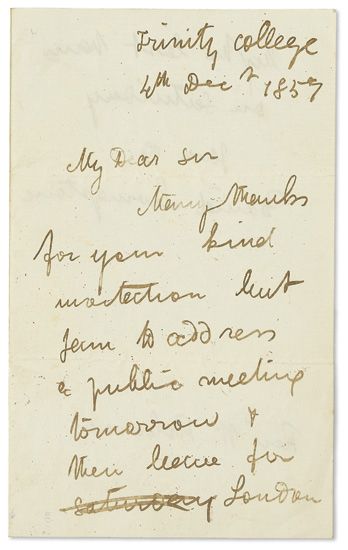 Trinity College
4th Decr 1857
My Dear Sir
Many thanks
for your kind
invitation but
I am to address
a public meeting
tomorrow &
then leave for
saturday London